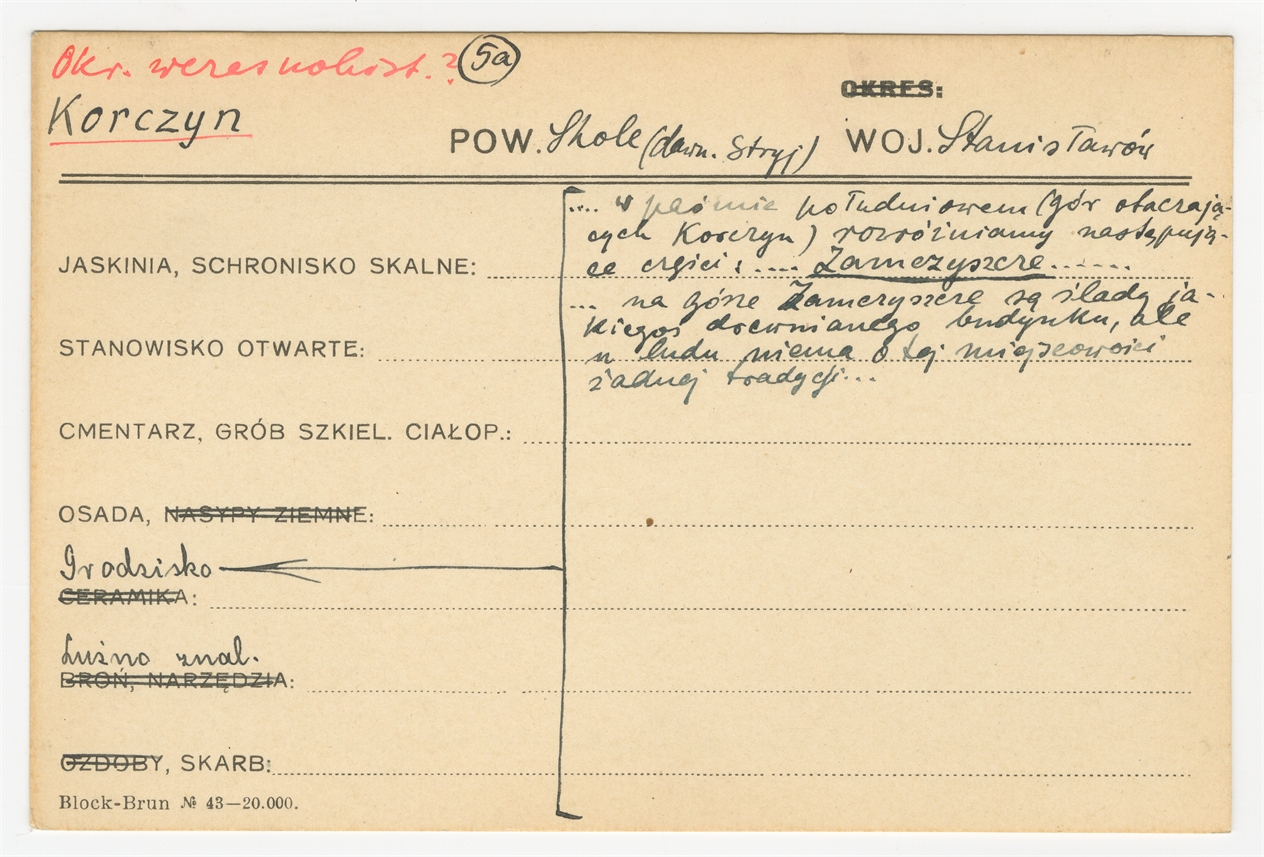 Okr. wczesnohist.? 5a
OKRES:
Korczyn
POW. Skole (dawn. Stryj) WOJ. Stanisławów
.... w paśmie południowem (gór otaczają-
cych Korczyn) rozróżniamy następują-
ce części: .... Zamczyszcze......
... na górze Zamczyszcze są ślady ja-
kiegoś drewnianego budynku, ale
u ludu niema o tej miejscowości
żadnej tradycji...
JASKINIA, SCHRONISKO SKALNE:
STANOWISKO OTWARTE:
CMENTARZ, GRÓB SZKIEL. CIAŁOP.:
OSADA, NASYPY ZIEMNE:
Grodzisko
CERAMIKA:
Luźno znal.
BROŃ, NARZĘDZIA:
OZDOBY, SKARB:
Block-Brun № 43—20.000.